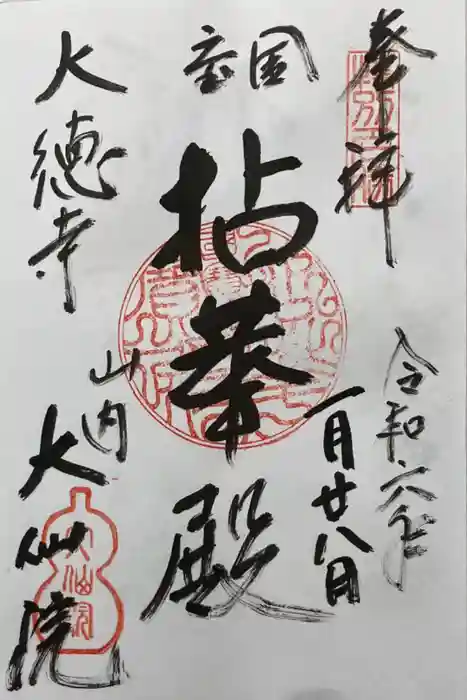 奉拝
令和六年
一月廿八日
国宝
拈華殿
大徳寺
山内
大仙院
大仙院